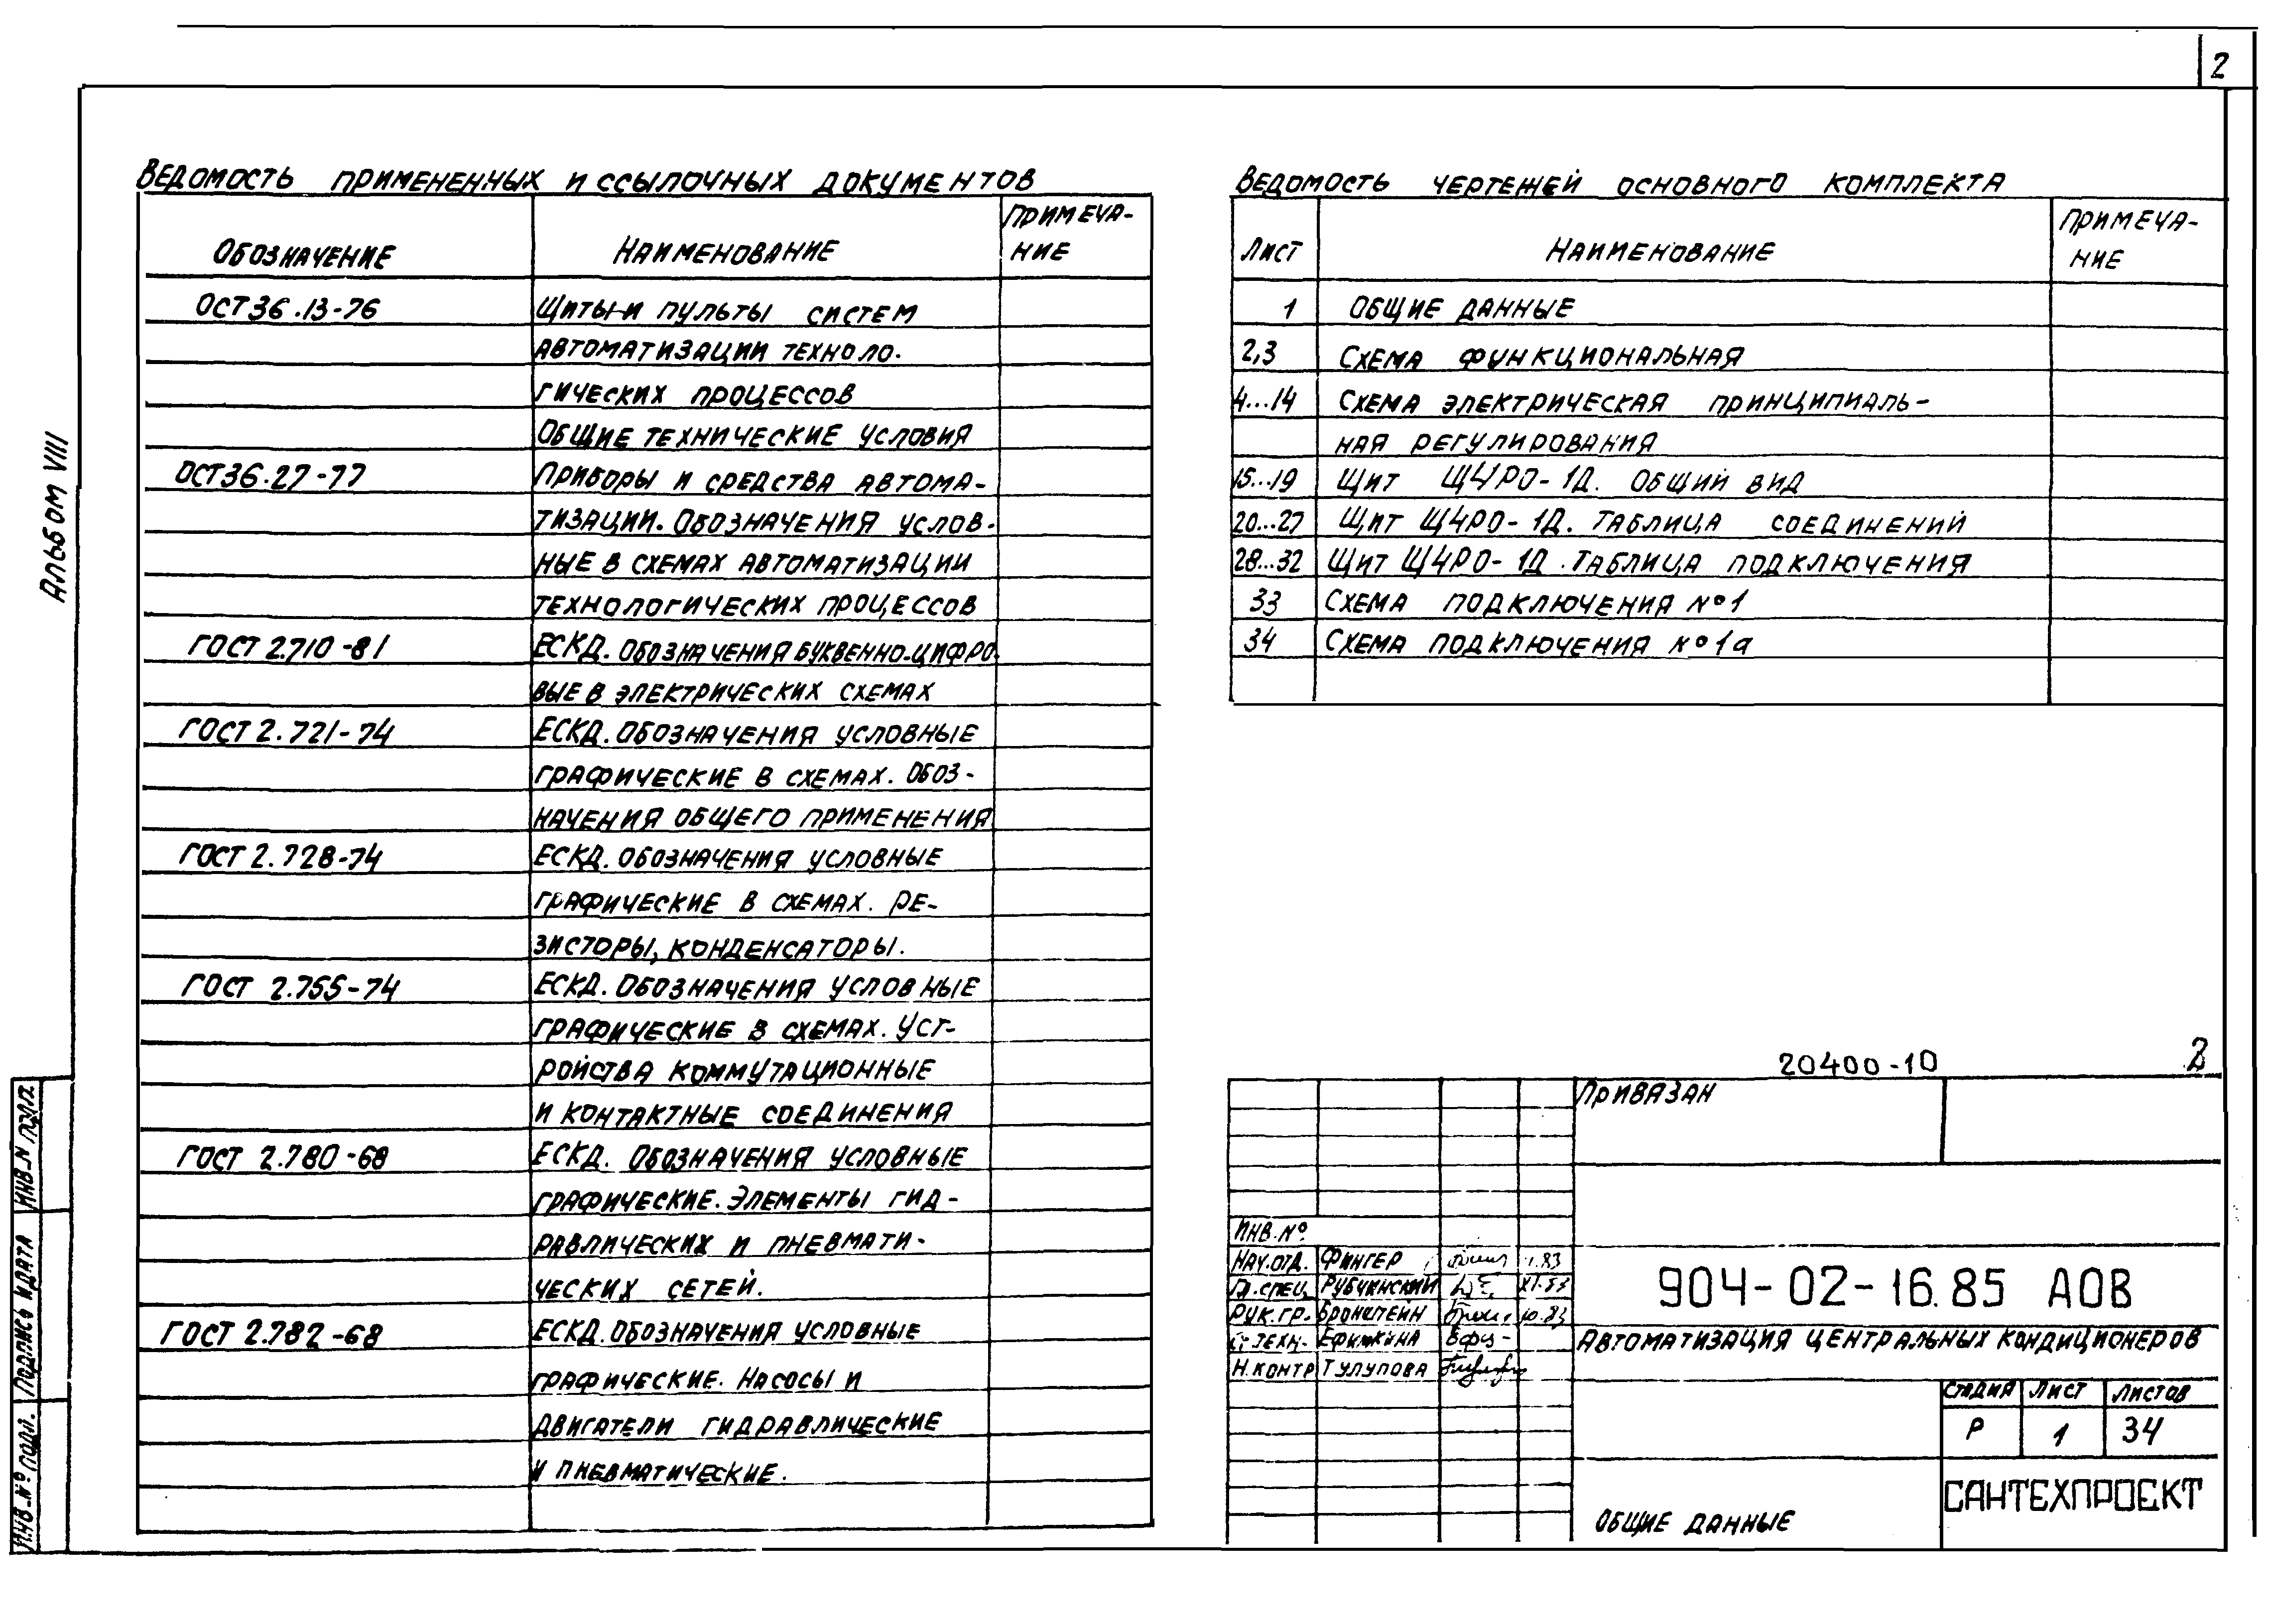 2
Альбом VIII
Ведомость примененных и ссылочных документов
Обозначение Наименование Примеча-
ние
ОСТ 36.13-76 Щиты и пульты систем
автоматизации техноло-
гических процессов
Общие технические условия
ОСТ 36.27-77 Приборы и средства автома-
тизации. Обозначения услов-
ные в схемах автоматизации
технологических процессов
ГОСТ 2.710-81 ЕСКД. Обозначения буквенно-цифро-
вые в электрических схемах
ГОСТ 2.721-74 ЕСКД. Обозначения условные
графические в схемах. Обоз-
начения общего применения
ГОСТ 2.728-74 ЕСКД. Обозначения условные
графические в схемах. Ре-
зисторы, конденсаторы.
ГОСТ 2.755-74 ЕСКД. Обозначения условные
графические в схемах. Уст-
ройства коммутационные
и контактные соединения
ГОСТ 2.780-68 ЕСКД. Обозначения условные
графические. Элементы гид-
равлических и пневмати-
ческих сетей.
ГОСТ 2.782-68 ЕСКД. Обозначения условные
графические. Насосы и
двигатели гидравлические
и пневматические.
Ведомость чертежей основного комплекта
Лист Наименование Примеча-
ние
1 Общие данные
2,3 Схема функциональная
4...14 Схема электрическая принципиаль-
ная регулирования
15...19 Щит Щ4РО-1Д. Общий вид
20...27 Щит Щ4РО-1Д. Таблица соединений
28...32 Щит Щ4РО-1Д. Таблица подключения
33 Схема подключения №1
34 Схема подключения №1а
20400-10 2
Привязан
Инв.№
Нач.отд. Фингер
Гл.спец. Рубчинский XI.83
Рук.гр. Бронштейн 10.83
Ст.техн. Ефимкина
Н.контр Тулупова
904-02-16.85 АОВ
Автоматизация центральных кондиционеров
Стадия Лист Листов
Р 1 34
Общие данные
САНТЕХПРОЕКТ
Инв.№ подл. Подпись и дата Инв.№ подл.